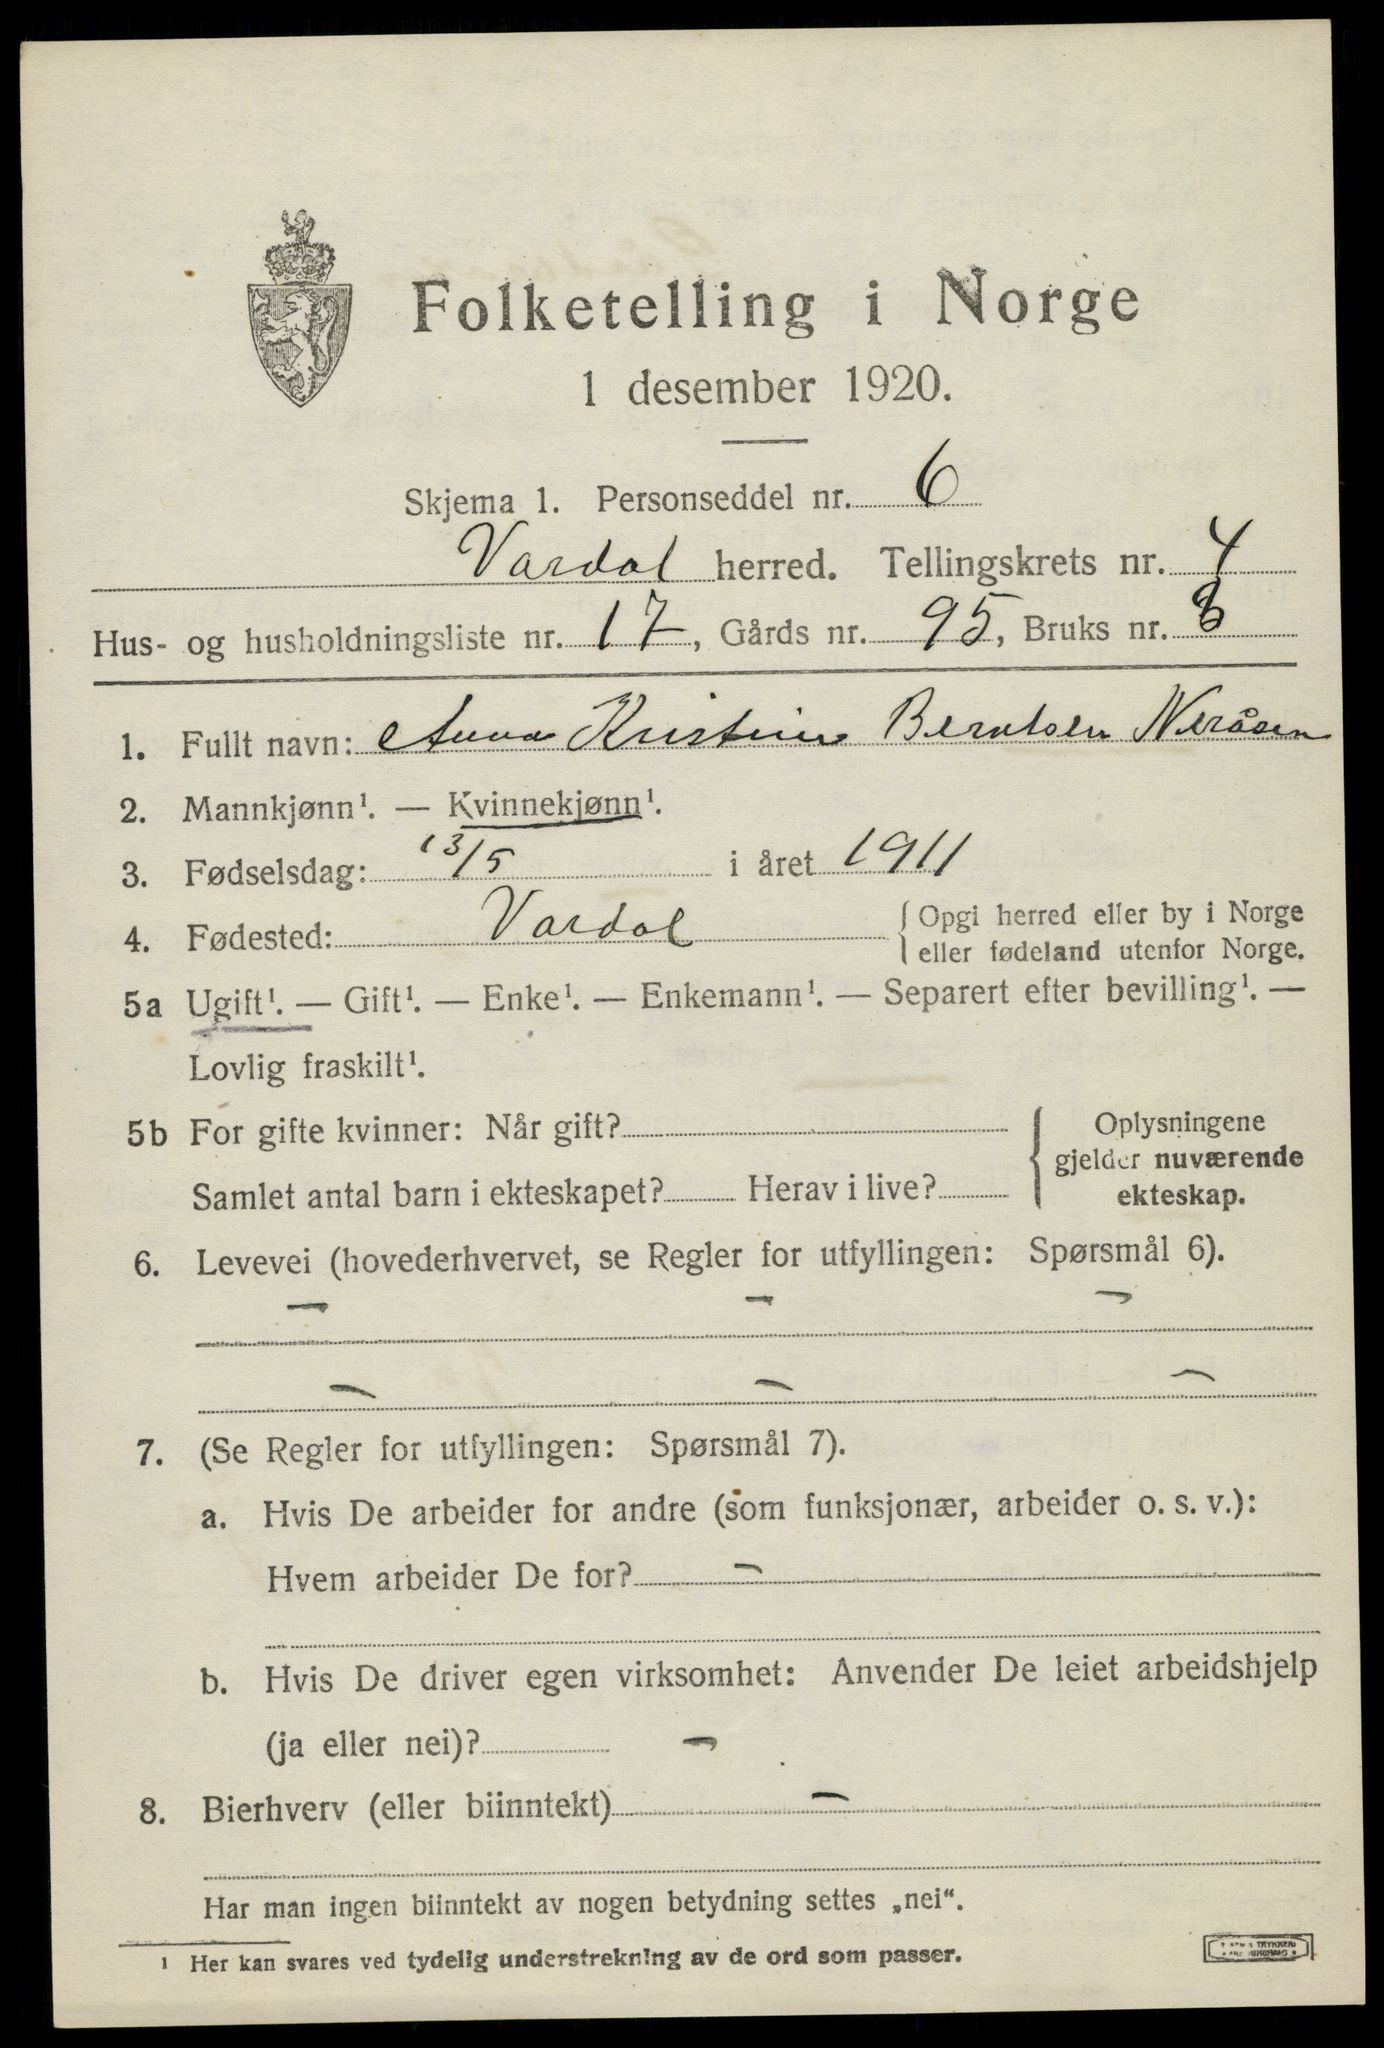 Folketelling i Norge
1 desember 1920.
Skjema 1. Personseddel nr. 6
Vardal herred. Tellingskrets nr. 4
Hus- og husholdningsliste nr. 17, Gårds nr. 95, Bruks nr. 3
1. Fullt navn: Anna Kristine Berntsen Neråsen
2. Mannkjønn¹. — Kvinnekjønn¹.
3. Fødselsdag: 13/5 i året 1911
4. Fødested: Vardal { Opgi herred eller by i Norge
eller fødeland utenfor Norge.
5a Ugift¹. — Gift¹. — Enke¹. — Enkemann¹. — Separert efter bevilling¹. —
Lovlig fraskilt¹.
5b For gifte kvinner: Når gift?
Samlet antal barn i ekteskapet? Herav i live?
{ Oplysningene
gjelder nuværende
ekteskap.
6. Levevei (hovederhvervet, se Regler for utfyllingen: Spørsmål 6).
— — —
— — —
7. (Se Regler for utfyllingen: Spørsmål 7).
a. Hvis De arbeider for andre (som funksjonær, arbeider o. s. v.):
Hvem arbeider De for? —
b. Hvis De driver egen virksomhet: Anvender De leiet arbeidshjelp
(ja eller nei)? —
8. Bierhverv (eller biinntekt) —
Har man ingen biinntekt av nogen betydning settes „nei“.
¹ Her kan svares ved tydelig understrekning av de ord som passer.
TRYKKERI